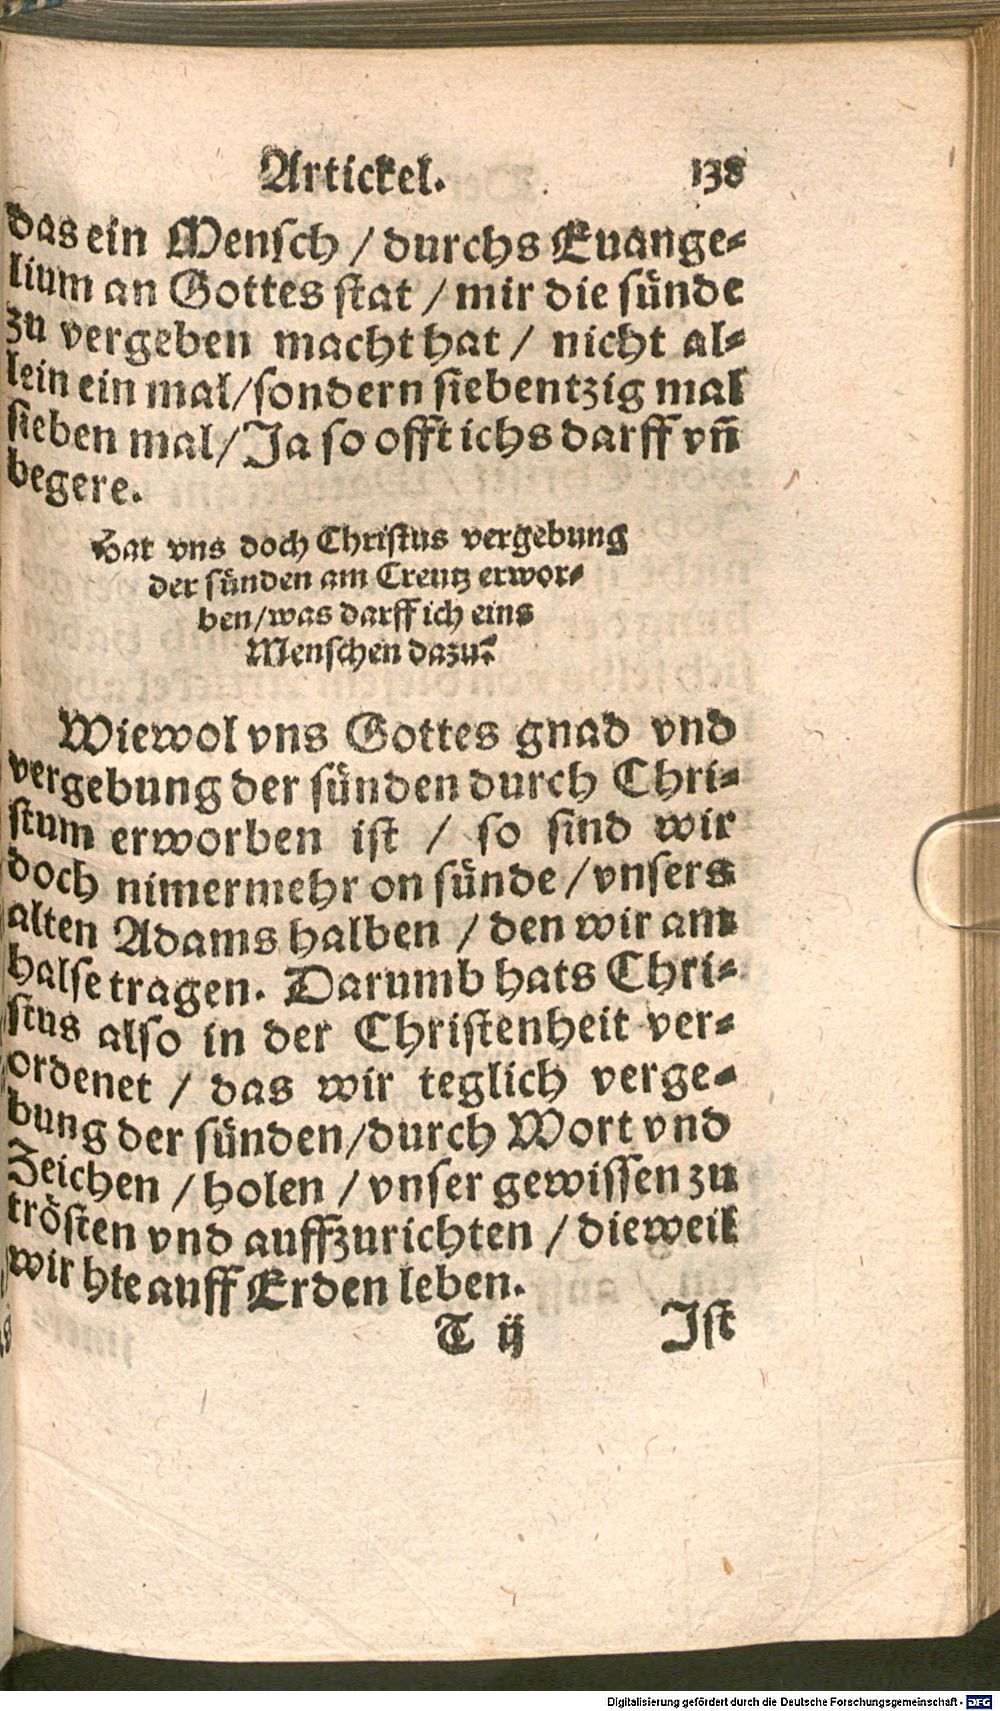 Artickel. 138
das ein Mensch / durchs Euange⸗
lium an Gottes stat / mir die sünde
zu vergeben macht hat / nicht al⸗
lein ein mal/sondern siebentzig mal
sieben mal/Ja so offt ichs darff vñ
begere.
Hat vns doch Christus vergebung
der sünden am Creutz erwor⸗
ben/was darff ich eins
Menschen dazu?
Wiewol vns Gottes gnad vnd
vergebung der sünden durch Chri⸗
stum erworben ist / so sind wir
doch nimermehr on sünde /vnsers
alten Adams halben / den wir am
halse tragen. Darumb hats Chri⸗
stus also in der Christenheit ver⸗
ordenet / das wir teglich verge⸗
bung der sünden/durch Wort vnd
Zeichen / holen / vnser gewissen zu
trösten vnd auffzurichten / dieweil
wir hie auff Erden leben.
T ij Ist
Digitalisierung gefördert durch die Deutsche Forschungsgemeinschaft - DFG